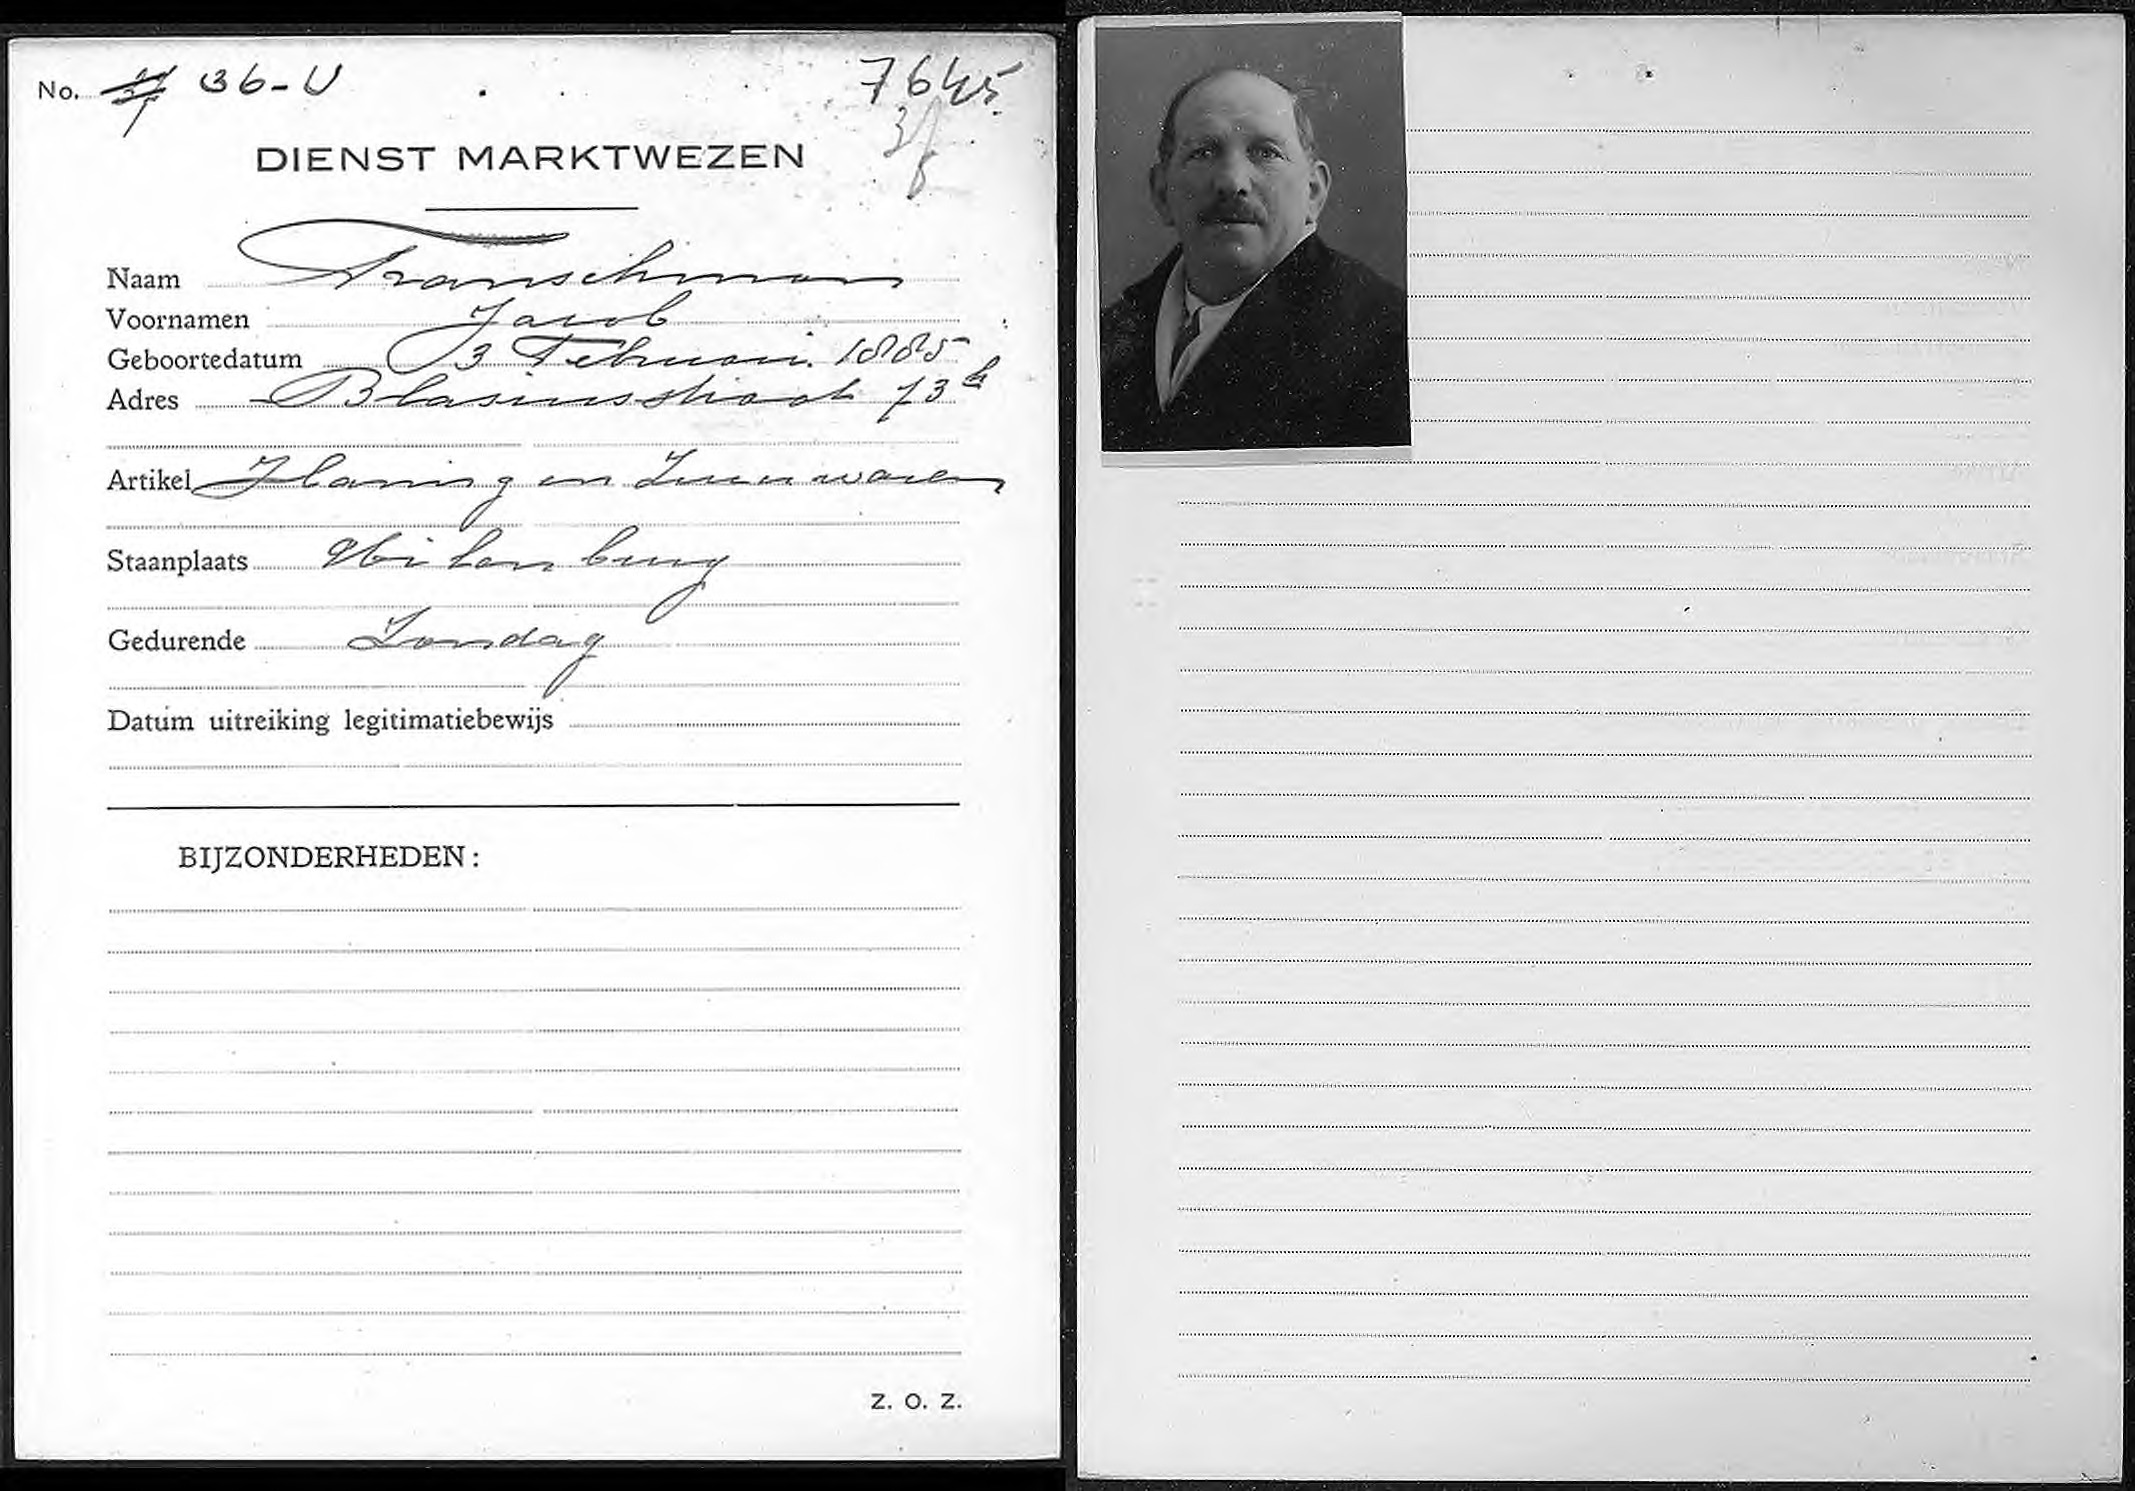 No. 36-U 7645
DIENST MARKTWEZEN
Naam Franschman
Voornamen Jacob
Geboortedatum 3 Februari 1885
Adres Blasiusstraat 73 h
Artikel Haring en Zuurwaren
Staanplaats Uilenburg
Gedurende Zondag
Datum uitreiking legitimatiebewijs
BIJZONDERHEDEN:
Z. O. Z.